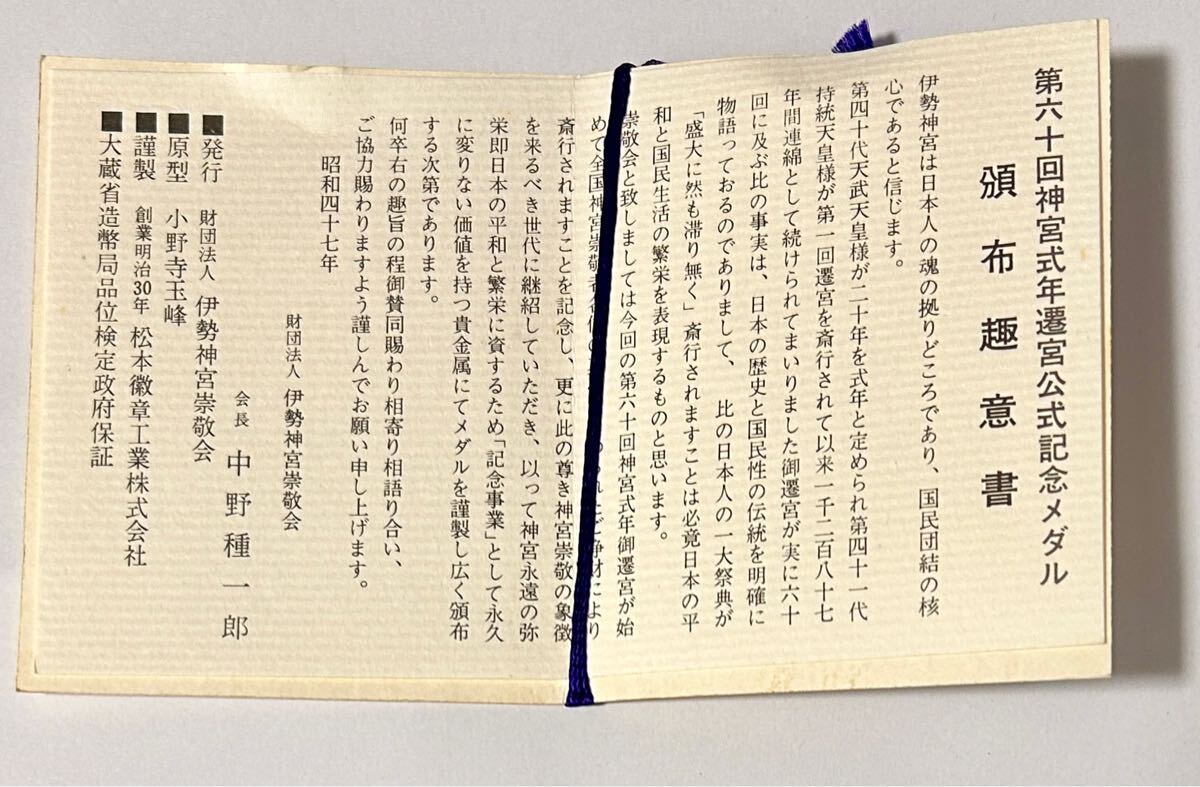 第六十回神宮式年遷宮公式記念メダル
頒布趣意書
伊勢神宮は日本人の魂の拠りどころであり、国民団結の核
心であると信じます。
第四十代天武天皇様が二十年を式年と定められ第四十一代
持統天皇様が第一回遷宮を斎行されて以来一千二百八十七
年間連綿として続けられてまいりました御遷宮が実に六十
回に及ぶ比の事実は、日本の歴史と国民性の伝統を明確に
物語っておるのでありまして、比の日本人の一大祭典が
「盛大に然も滞り無く」斎行されますことは必竟日本の平
和と国民生活の繁栄を表現するものと思います。
崇敬会と致しましては今回の第六十回神宮式年御遷宮が始
めて全国神宮崇敬者各位の ご浄財により
斎行されますことを記念し、更に此の尊き神宮崇敬の象徴
を来るべき世代に継紹していただき、以って神宮永遠の弥
栄即日本の平和と繁栄に資するため「記念事業」として永久
に変りない価値を持つ貴金属にてメダルを謹製し広く頒布
する次第であります。
何卒右の趣旨の程御賛同賜わり相寄り相語り合い、
ご協力賜わりますよう謹しんでお願い申し上げます。
昭和四十七年
財団法人 伊勢神宮崇敬会
会長 中野種一郎
■発行 財団法人 伊勢神宮崇敬会
■原型 小野寺玉峰
■謹製 創業明治30年 松本徽章工業株式会社
■大蔵省造幣局品位検定政府保証